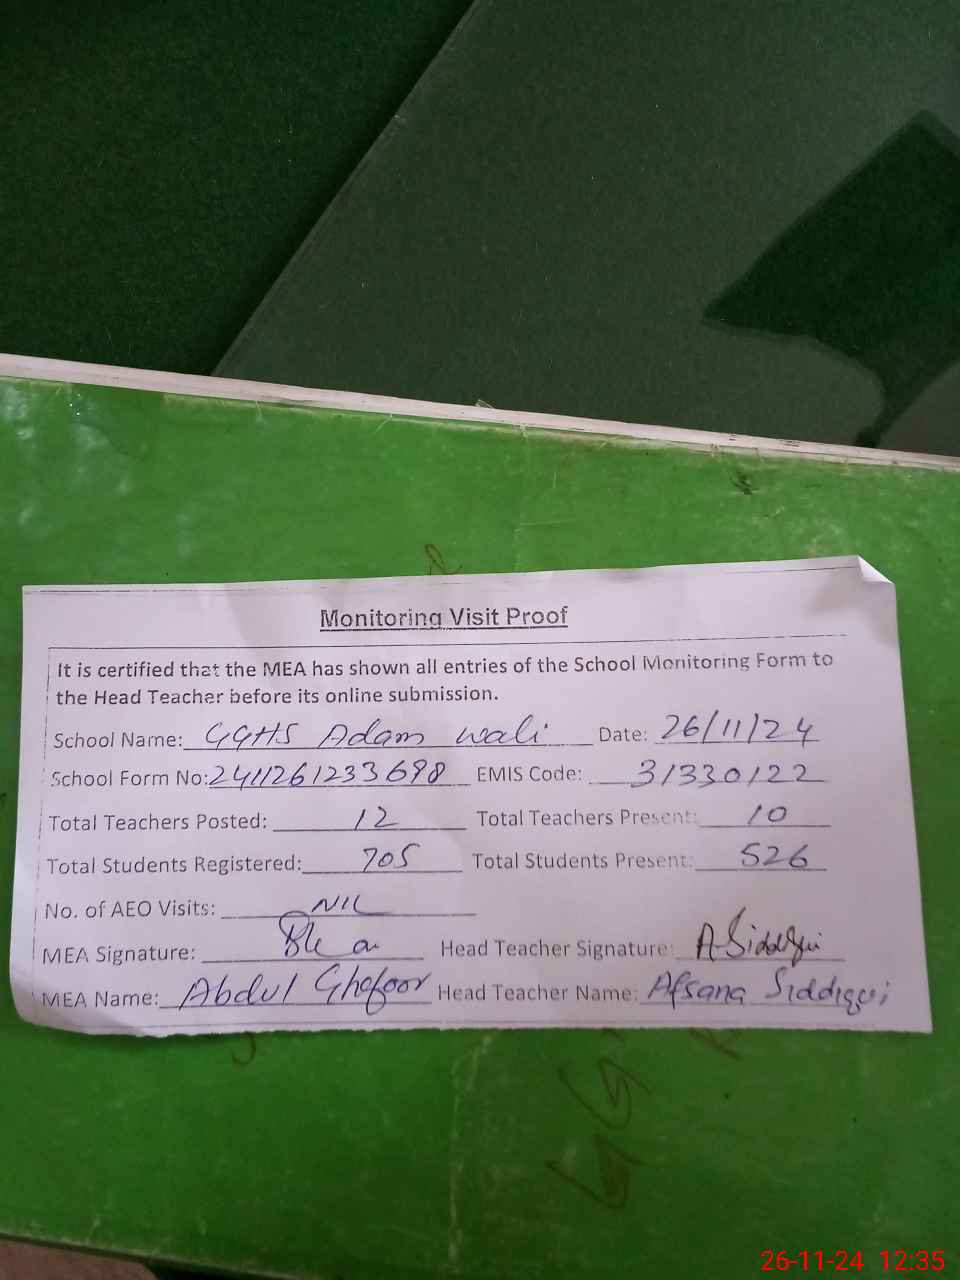 Monitoring Visit Proof
It is certified that the MEA has shown all entries of the School Monitoring Form to
the Head Teacher before its online submission.
School Name: GGHS Adam Wali Date: 26/11/24
School Form No: 2411261233698 EMIS Code: 31330122
Total Teachers Posted: 12 Total Teachers Present: 10
Total Students Registered: 705 Total Students Present: 526
No. of AEO Visits: NIL
MEA Signature: Head Teacher Signature: A Siddiqui
MEA Name: Abdul Ghafoor Head Teacher Name: Afsana Siddiqui
GG
26-11-24 12:35